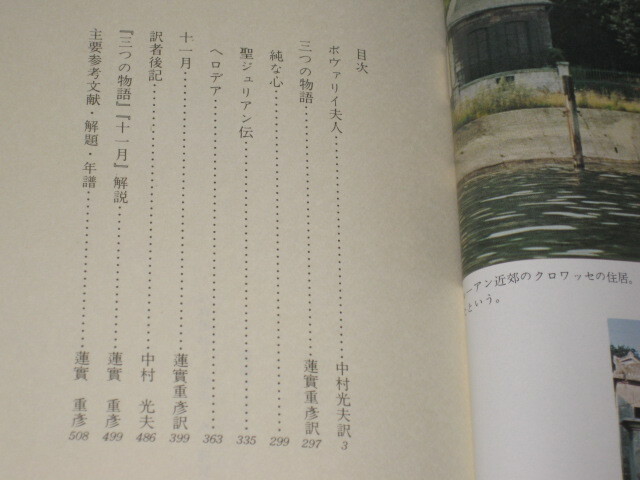 目次
ボヴァリイ夫人……中村光夫訳 3
三つの物語……蓮實重彦訳 297
純な心……299
聖ジュリアン伝……335
ヘロデア……363
十一月……蓮實重彦訳 399
訳者後記……中村 光夫 486
『三つの物語』『十一月』解説……蓮實 重彦 499
主要参考文献・解題・年譜……蓮實 重彦 508
ーアン近郊のクロワッセの住居。
という。